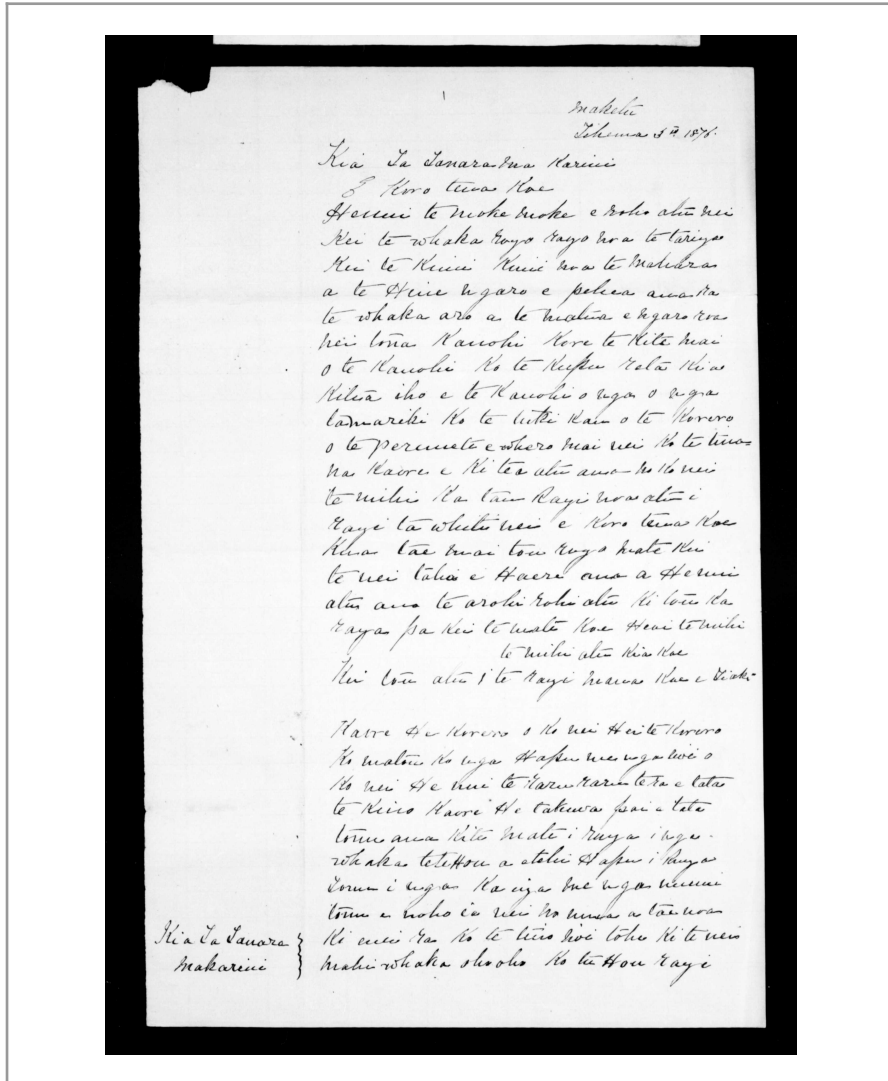 Maketu
Tihema 5th 1876.
Kia Ta Tanara Ma Karini
E Koro tena Koe
He nui te moke moke e noho atu nei
Kei te whaka rogo rogo noa te tariga
Kei te Kimi Kimi noa te Mahara
a te Hine ngaro e pehea ana ra
te whaka aro a te matua e ngaro roa
nei tona Kanohi Kore te Kite mai
o te Kanohi Ko te Kupu reta Kia
Kitea iho e te Kanohi o nga o nga
tamariki Ko te hiki Kau o te Korero
o te perimete e whero mai nei Ko te tina
na Kaore e Ki tea atu ana no Ko nei
te mihi Ka tau Ragi noa atu i
ragi ta whiti nei e Koro tena Koe
Kua tae mai tou rogo mate Kei
te nei taha e Haere ana a Henui
atu ana te arohi rohi atu Ki tou Ka
raga pa Kei te mate Koe Heoi te mihi
te mihi atu Kia Koe
Kei tou atu i te ragi mana Koe e Tiaki
Kaore He Korero o Ko nei Hei te Korero
Ko matou Ko nga Hapu me nga iwi o
Ko nei He nui te raru raru te ra e tata
te Kino Kaore He takiwa pai e tata
tonu ana Kite mate i ruga i nga
whaka tete Hou a etehi Hapu i Ruga
tonu i nga Ka iga me nga
tonu e noho ia nei no mua a tae noa
Ki enei ra Ko te tino iwi tohe Ki te nei
mahi whaka oho oho Ko te Hou ragi
Kia Ta Tanara
Makarini